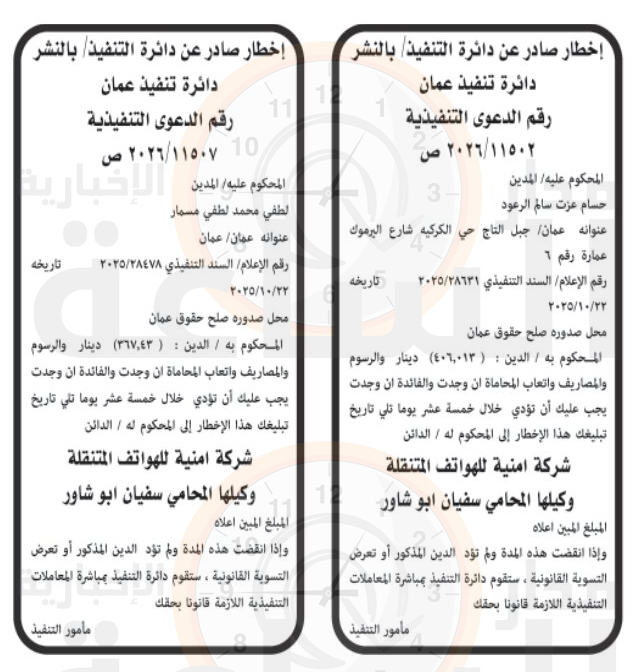 إخطار صادر عن دائرة التنفيذ/ بالنشر
دائرة تنفيذ عمان
رقم الدعوى التنفيذية
٢٠٢٦/١١٥٠٢ ص
المحكوم عليه/ المدين
حسام عزت سالم الرعود
عنوانه عمان/ جبل التاج حي الكركيه شارع اليرموك
عمارة رقم ٦
رقم الإعلام/ السند التنفيذي ٢٠٢٥/٢٨٦٣١ تاريخه
٢٠٢٥/١٠/٢٢
محل صدوره صلح حقوق عمان
المـحكوم به / الدين : ( ٤٠٦,٠١٣) دينار والرسوم
والمصاريف واتعاب المحاماة ان وجدت والفائدة ان وجدت
يجب عليك أن تؤدي خلال خمسة عشر يوما تلي تاريخ
تبليغك هذا الإخطار إلى المحكوم له / الدائن
شركة امنية للهواتف المتنقلة
وكيلها المحامي سفيان ابو شاور
المبلغ المبين اعلاه
وإذا انقضت هذه المدة ولم تؤد الدين المذكور أو تعرض
التسوية القانونية ، ستقوم دائرة التنفيذ بمباشرة المعاملات
التنفيذية اللازمة قانونا بحقك
مأمور التنفيذ
إخطار صادر عن دائرة التنفيذ/ بالنشر
دائرة تنفيذ عمان
رقم الدعوى التنفيذية
٢٠٢٦/١١٥٠٧ ص
المحكوم عليه/ المدين
لطفي محمد لطفي مسمار
عنوانه عمان/ عمان
رقم الإعلام/ السند التنفيذي ٢٠٢٥/٢٨٤٧٨ تاريخه
٢٠٢٥/١٠/٢٢
محل صدوره صلح حقوق عمان
المـحكوم به / الدين : ( ٣٦٧,٤٣) دينار والرسوم
والمصاريف واتعاب المحاماة ان وجدت والفائدة ان وجدت
يجب عليك أن تؤدي خلال خمسة عشر يوما تلي تاريخ
تبليغك هذا الإخطار إلى المحكوم له / الدائن
شركة امنية للهواتف المتنقلة
وكيلها المحامي سفيان ابو شاور
المبلغ المبين اعلاه
وإذا انقضت هذه المدة ولم تؤد الدين المذكور أو تعرض
التسوية القانونية ، ستقوم دائرة التنفيذ بمباشرة المعاملات
التنفيذية اللازمة قانونا بحقك
مأمور التنفيذ